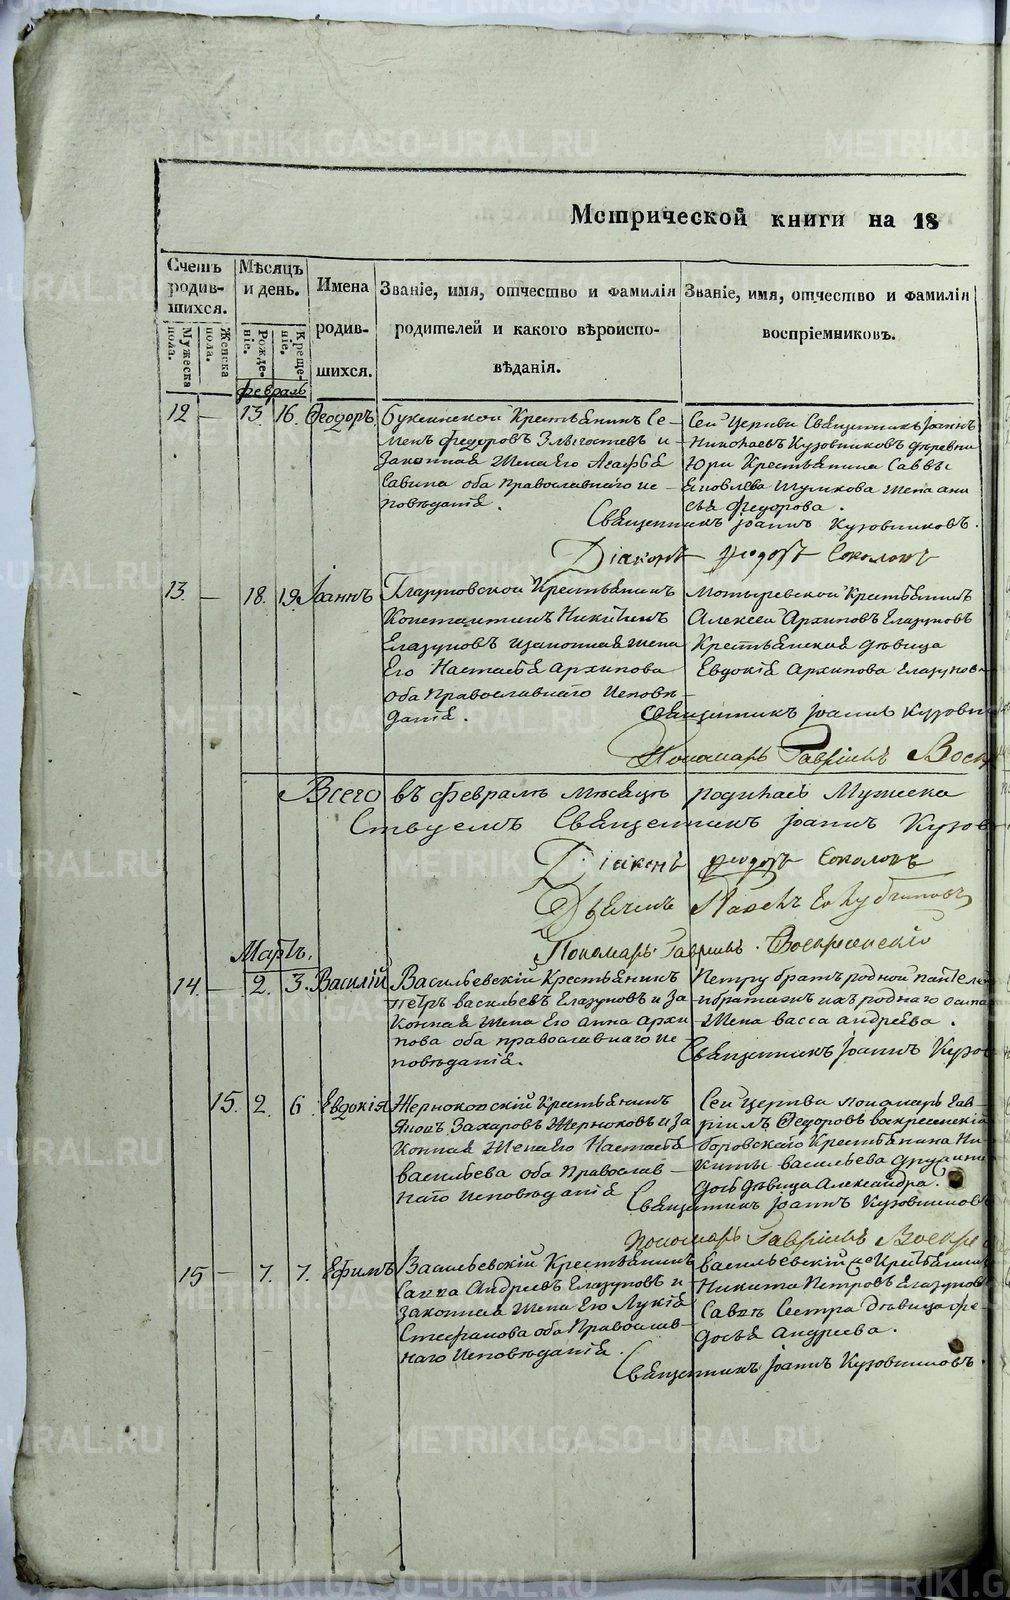 Метрической книги на 18
Счетъ родившихся.
Мѣсяцъ и день.
Имена родившихся.
Званіе, имя, отчество и фамилія родителей и какого вѣроисповѣданія.
Званіе, имя, отчество и фамилія воспріемниковъ.
Мужеска пола.
Женска пола.
Рожденіе.
Крещеніе.
февраль
12 — 15 16. Ѳеодоръ
Крестьянинъ Се-
менъ Федоровъ и
Законная Жена Его
Савина оба Православнаго ис-
повѣданія.
Сей Церкви Священникъ Іоаннъ
Николаевъ Кузовниковъ деревни
Юри Крестьянина Саввы
Яковлева Жена ани
сья Федорова.
Священникъ Іоаннъ Кузовниковъ.
Діаконъ Ѳеодотъ Соколовъ
13. — 18. 19. Іоаннъ
Крестьянинъ
Константинъ Никитинъ
Глазуновъ и законная жена
Его Настасья Архипова
оба Православнаго Исповѣ-
данія.
Крестьянинъ
Алексей Архиповъ Глазуновъ
Крестьянская дѣвица
Евдокія Архипова Глазунова
Священникъ Іоаннъ Кузовни
Пономарь Гавріилъ Воск
Всего въ февралѣ мѣсяцѣ родилось Мужеска
Священникъ Іоаннъ Кузов
Діаконъ Ѳеодотъ Соколовъ
Дьячекъ
Пономарь Гавріилъ Воскресенскій
Мартъ.
14. — 2. 3. Василій
Васильевскій Крестьянинъ
Петръ Васильевъ Глазуновъ и За
конная Жена Его Анна Архи
пова оба православнаго ис
повѣданія.
Петру братъ родной
ихъ роднаго
Жена Васса Андреева.
Священникъ Іоаннъ Кузов
15. 2. 6. Евдокія
Жерноковскій Крестьянинъ
Захаровъ Жерноковъ и За
конная Жена Его Настасья
Васильева оба Православ-
наго Исповѣданія
Сей Церкви пономарь Гав-
ріилъ Ѳедоровъ Воскресенскій
Боровскаго Крестьянина Ни-
киты Васильева
дочь дѣвица Александра.
Священникъ Іоаннъ Кузовниковъ
Пономарь Гавріилъ Воскре
15 — 7. 7. Ефимъ
Васильевскій Крестьянинъ
Савва Андреевъ Глазуновъ и
Законная Жена Его Лукія
Стефанова оба Православ-
наго Исповѣданія.
Васильевскій Крестьянинъ
Никита Петровъ Глазуновъ
Саввы Сестра дѣвица Фе-
досья Андреева.
Священникъ Іоаннъ Кузовниковъ.
METRIKI.GASO-URAL.RU